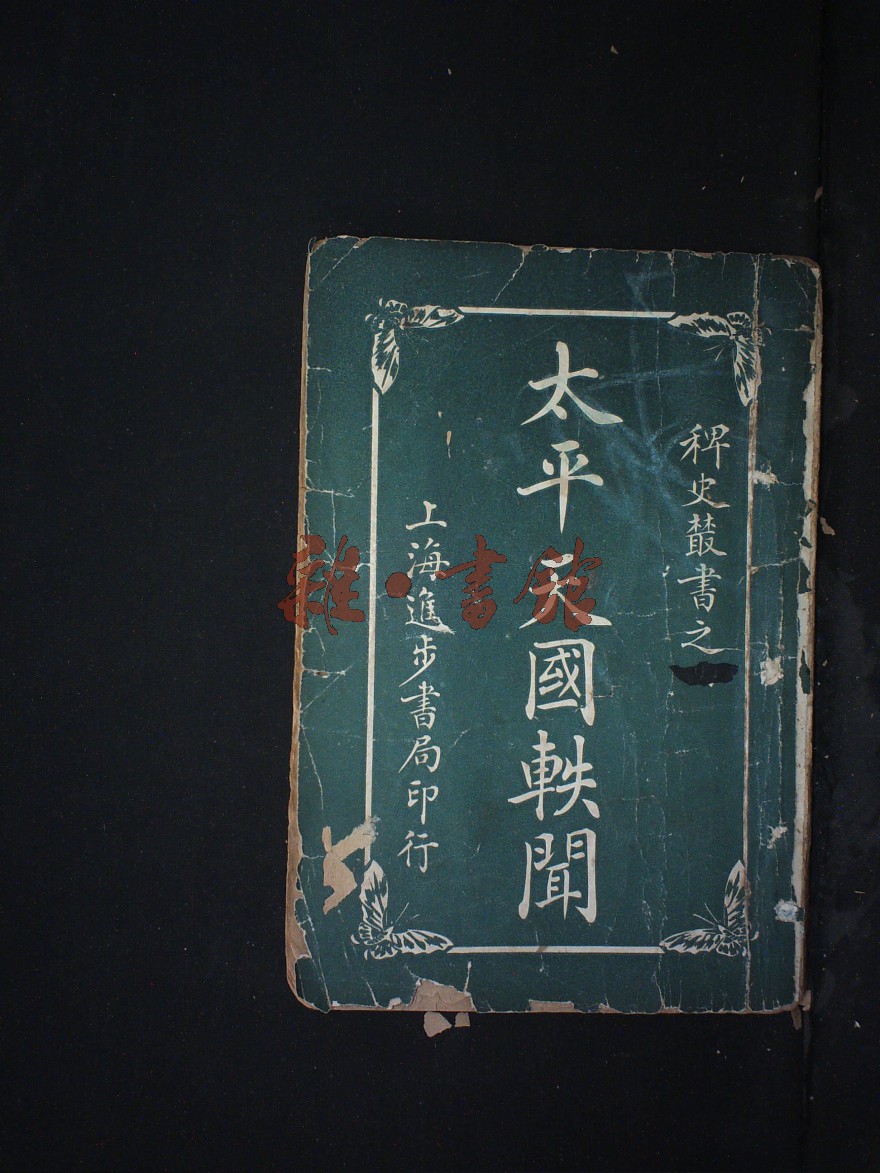 稗史叢書之
太平天國軼聞
上海進步書局印行
雜·書館